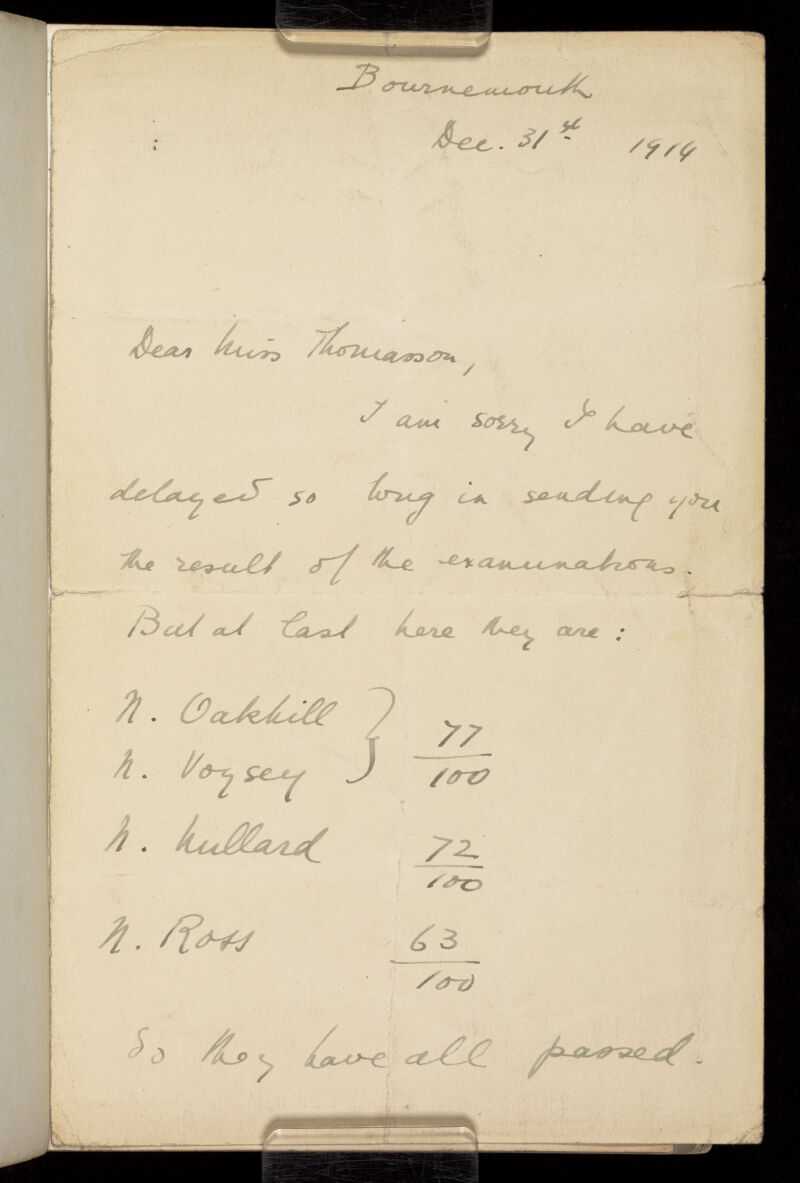 Bournemouth
Dec. 31st 1914
Dear Miss Thomasson,
I am sorry I have
delayed so long in sending you
the result of the examinations.
But at last here they are:
N. Oakhill
N. Voysey } 77/100
N. Mullard 72/100
N. Ross 63/100
So they have all passed.